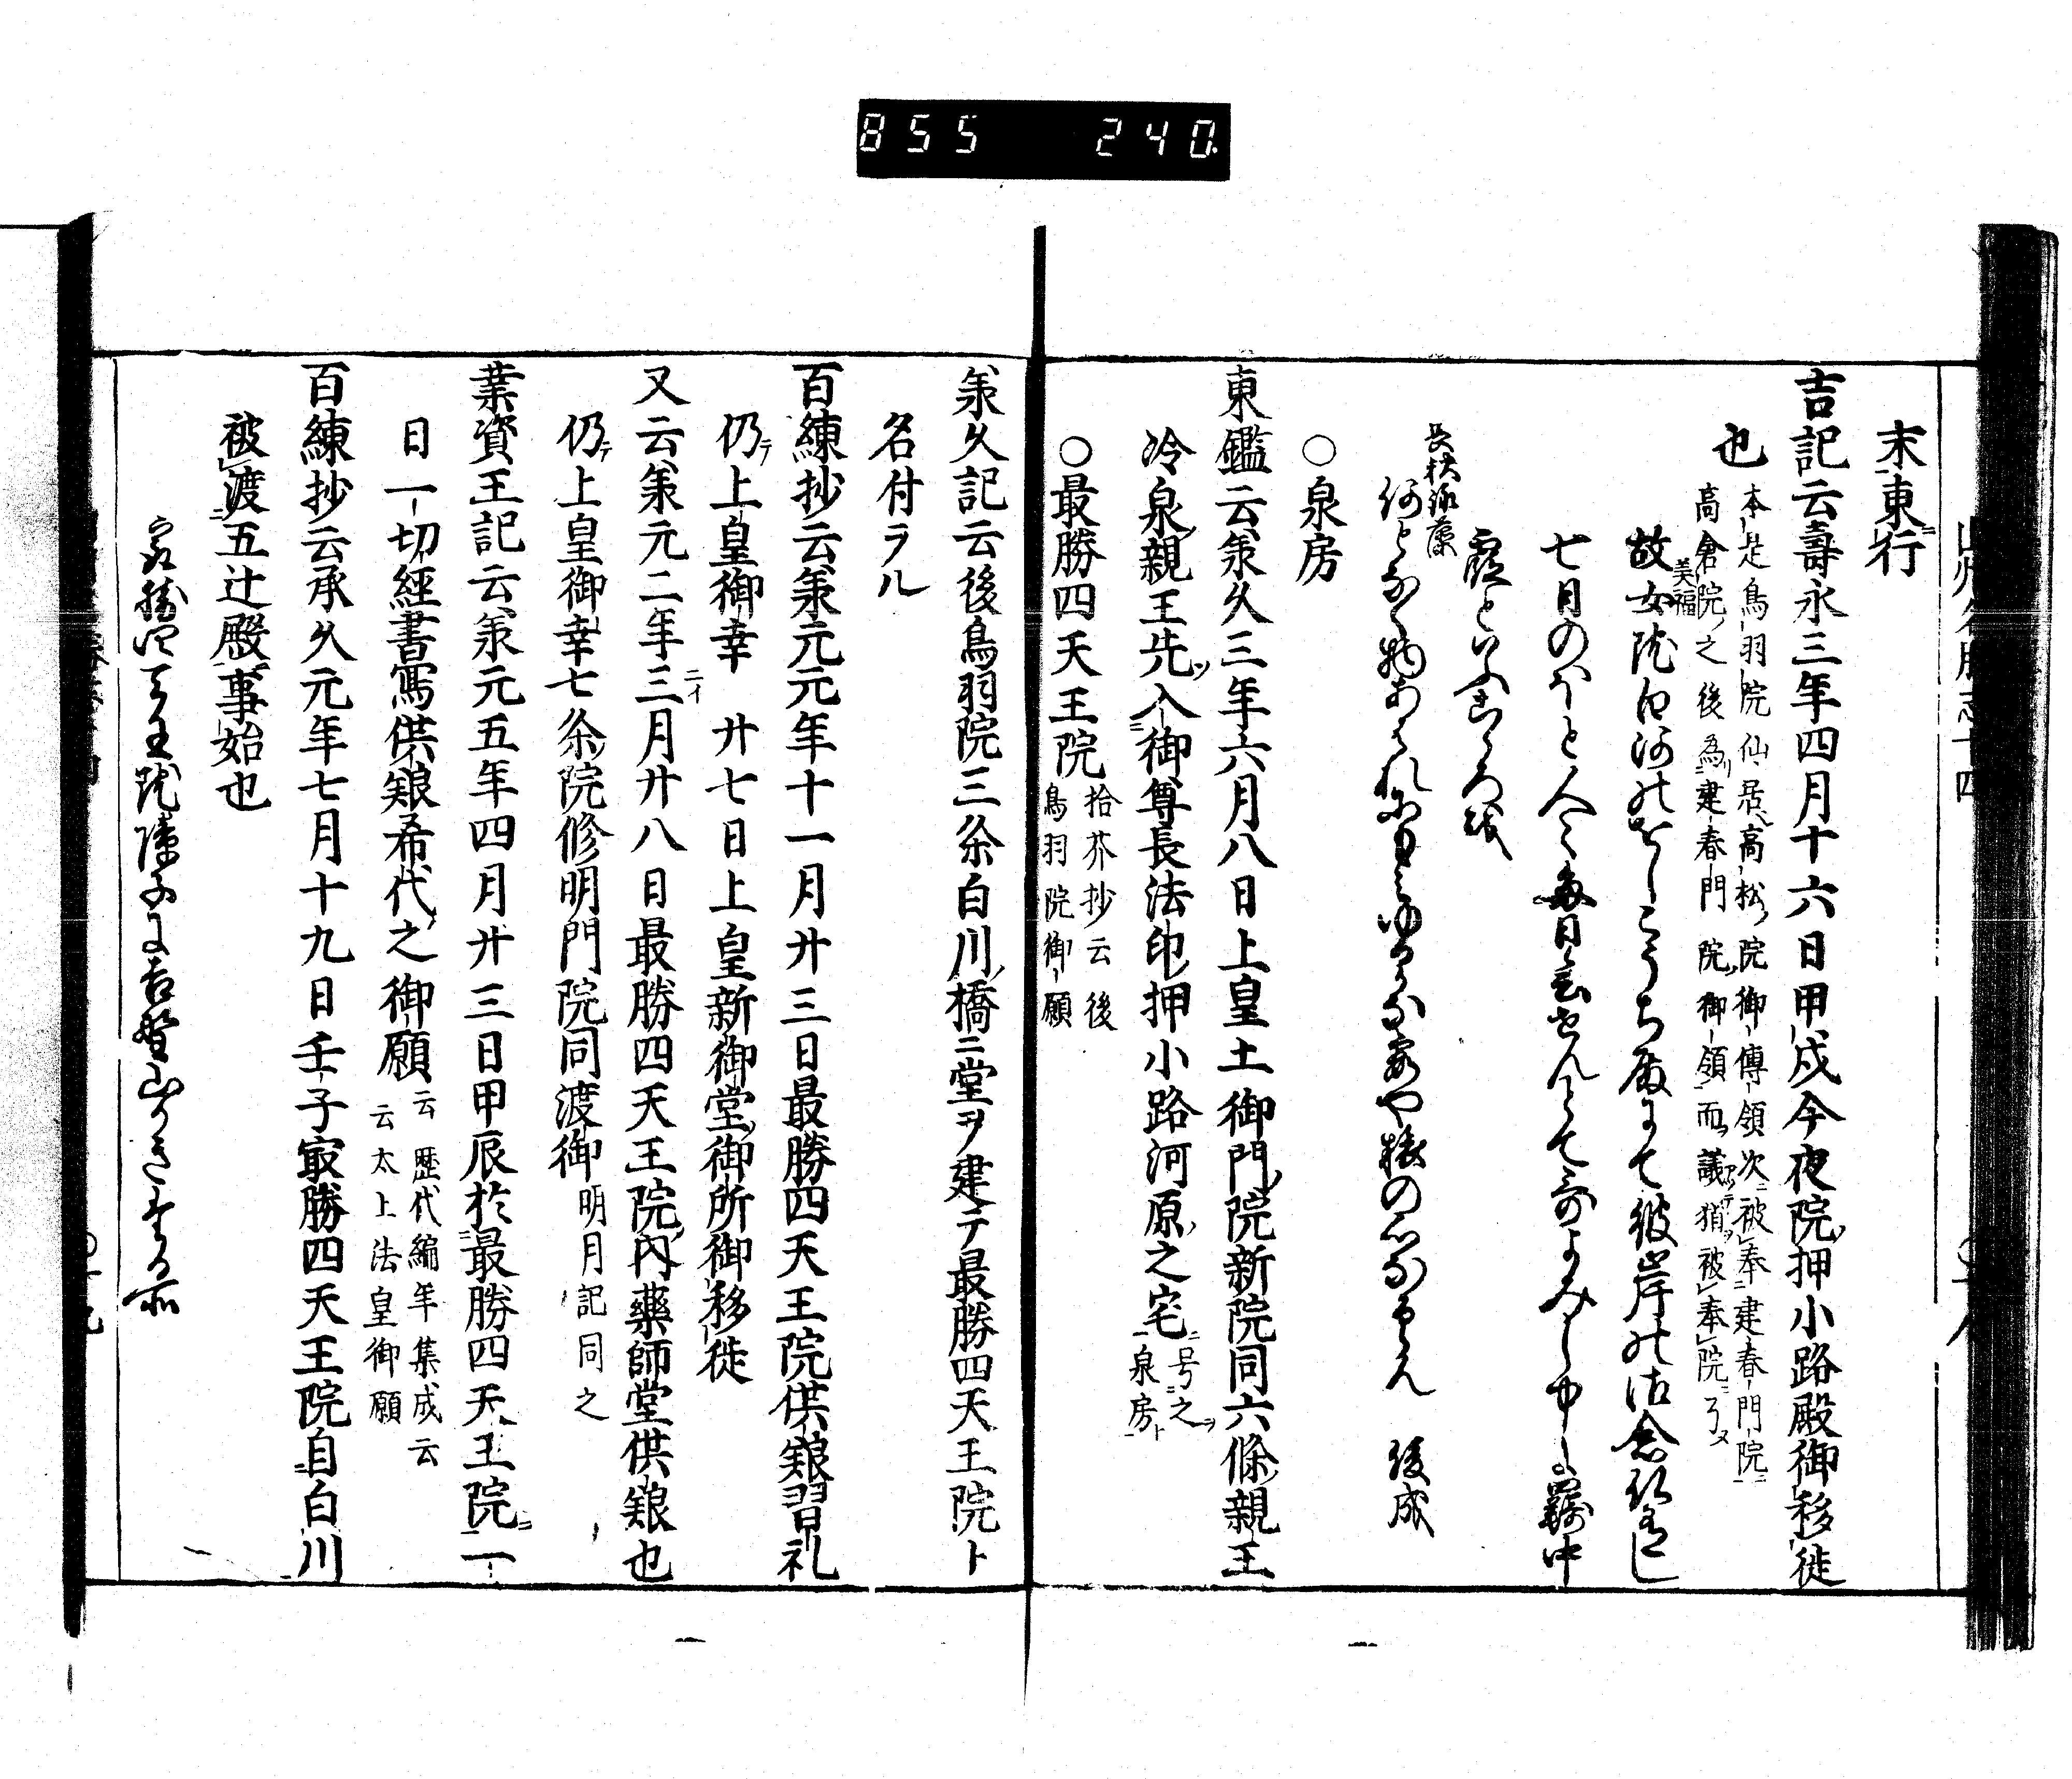 855 240
末東行
吉記云壽永三年四月十六日甲戌今夜院押小路殿御移徙
也
本是鳥羽院仙居高松院御傳領次被奉建春門院
高倉院之後為建春門院御領而議猶被奉院了
美福
故女院白河のをしこうち殿にて彼岸の御念仏
七月のほと人々毎日会せんとて哥よみし中に羇中
霞といふこゝろを
長秋詠藻
何となく物あはれにも 俊成
○泉房
東鑑云承久三年六月八日上皇土御門院新院同六條親王
冷泉親王先入御尊長法印押小路河原之宅
号之
泉房ト
○最勝四天王院
拾芥抄云後
鳥羽院御願
承久記云後鳥羽院三条白川橋ニ堂ヲ建テ最勝四天王院ト
名付ラル
百練抄云承元元年十一月廿三日最勝四天王院供粮習礼
仍テ上皇御幸 廿七日上皇新御堂御所御移徙
又云承元二年三月廿八日最勝四天王院内藥師堂供粮也
ニイ
仍テ上皇御幸七条院修明門院同渡御
明月記同之
業資王記云承元五年四月廿三日甲辰於最勝四天王院一
日一切經書寫供粮希代之御願
云歴代編年集成云
云太上法皇御願
百練抄云承久元年七月十九日壬子最勝四天王院自白川
被渡五辻殿事始也
最勝四天王院障子に吉野山かきたる所